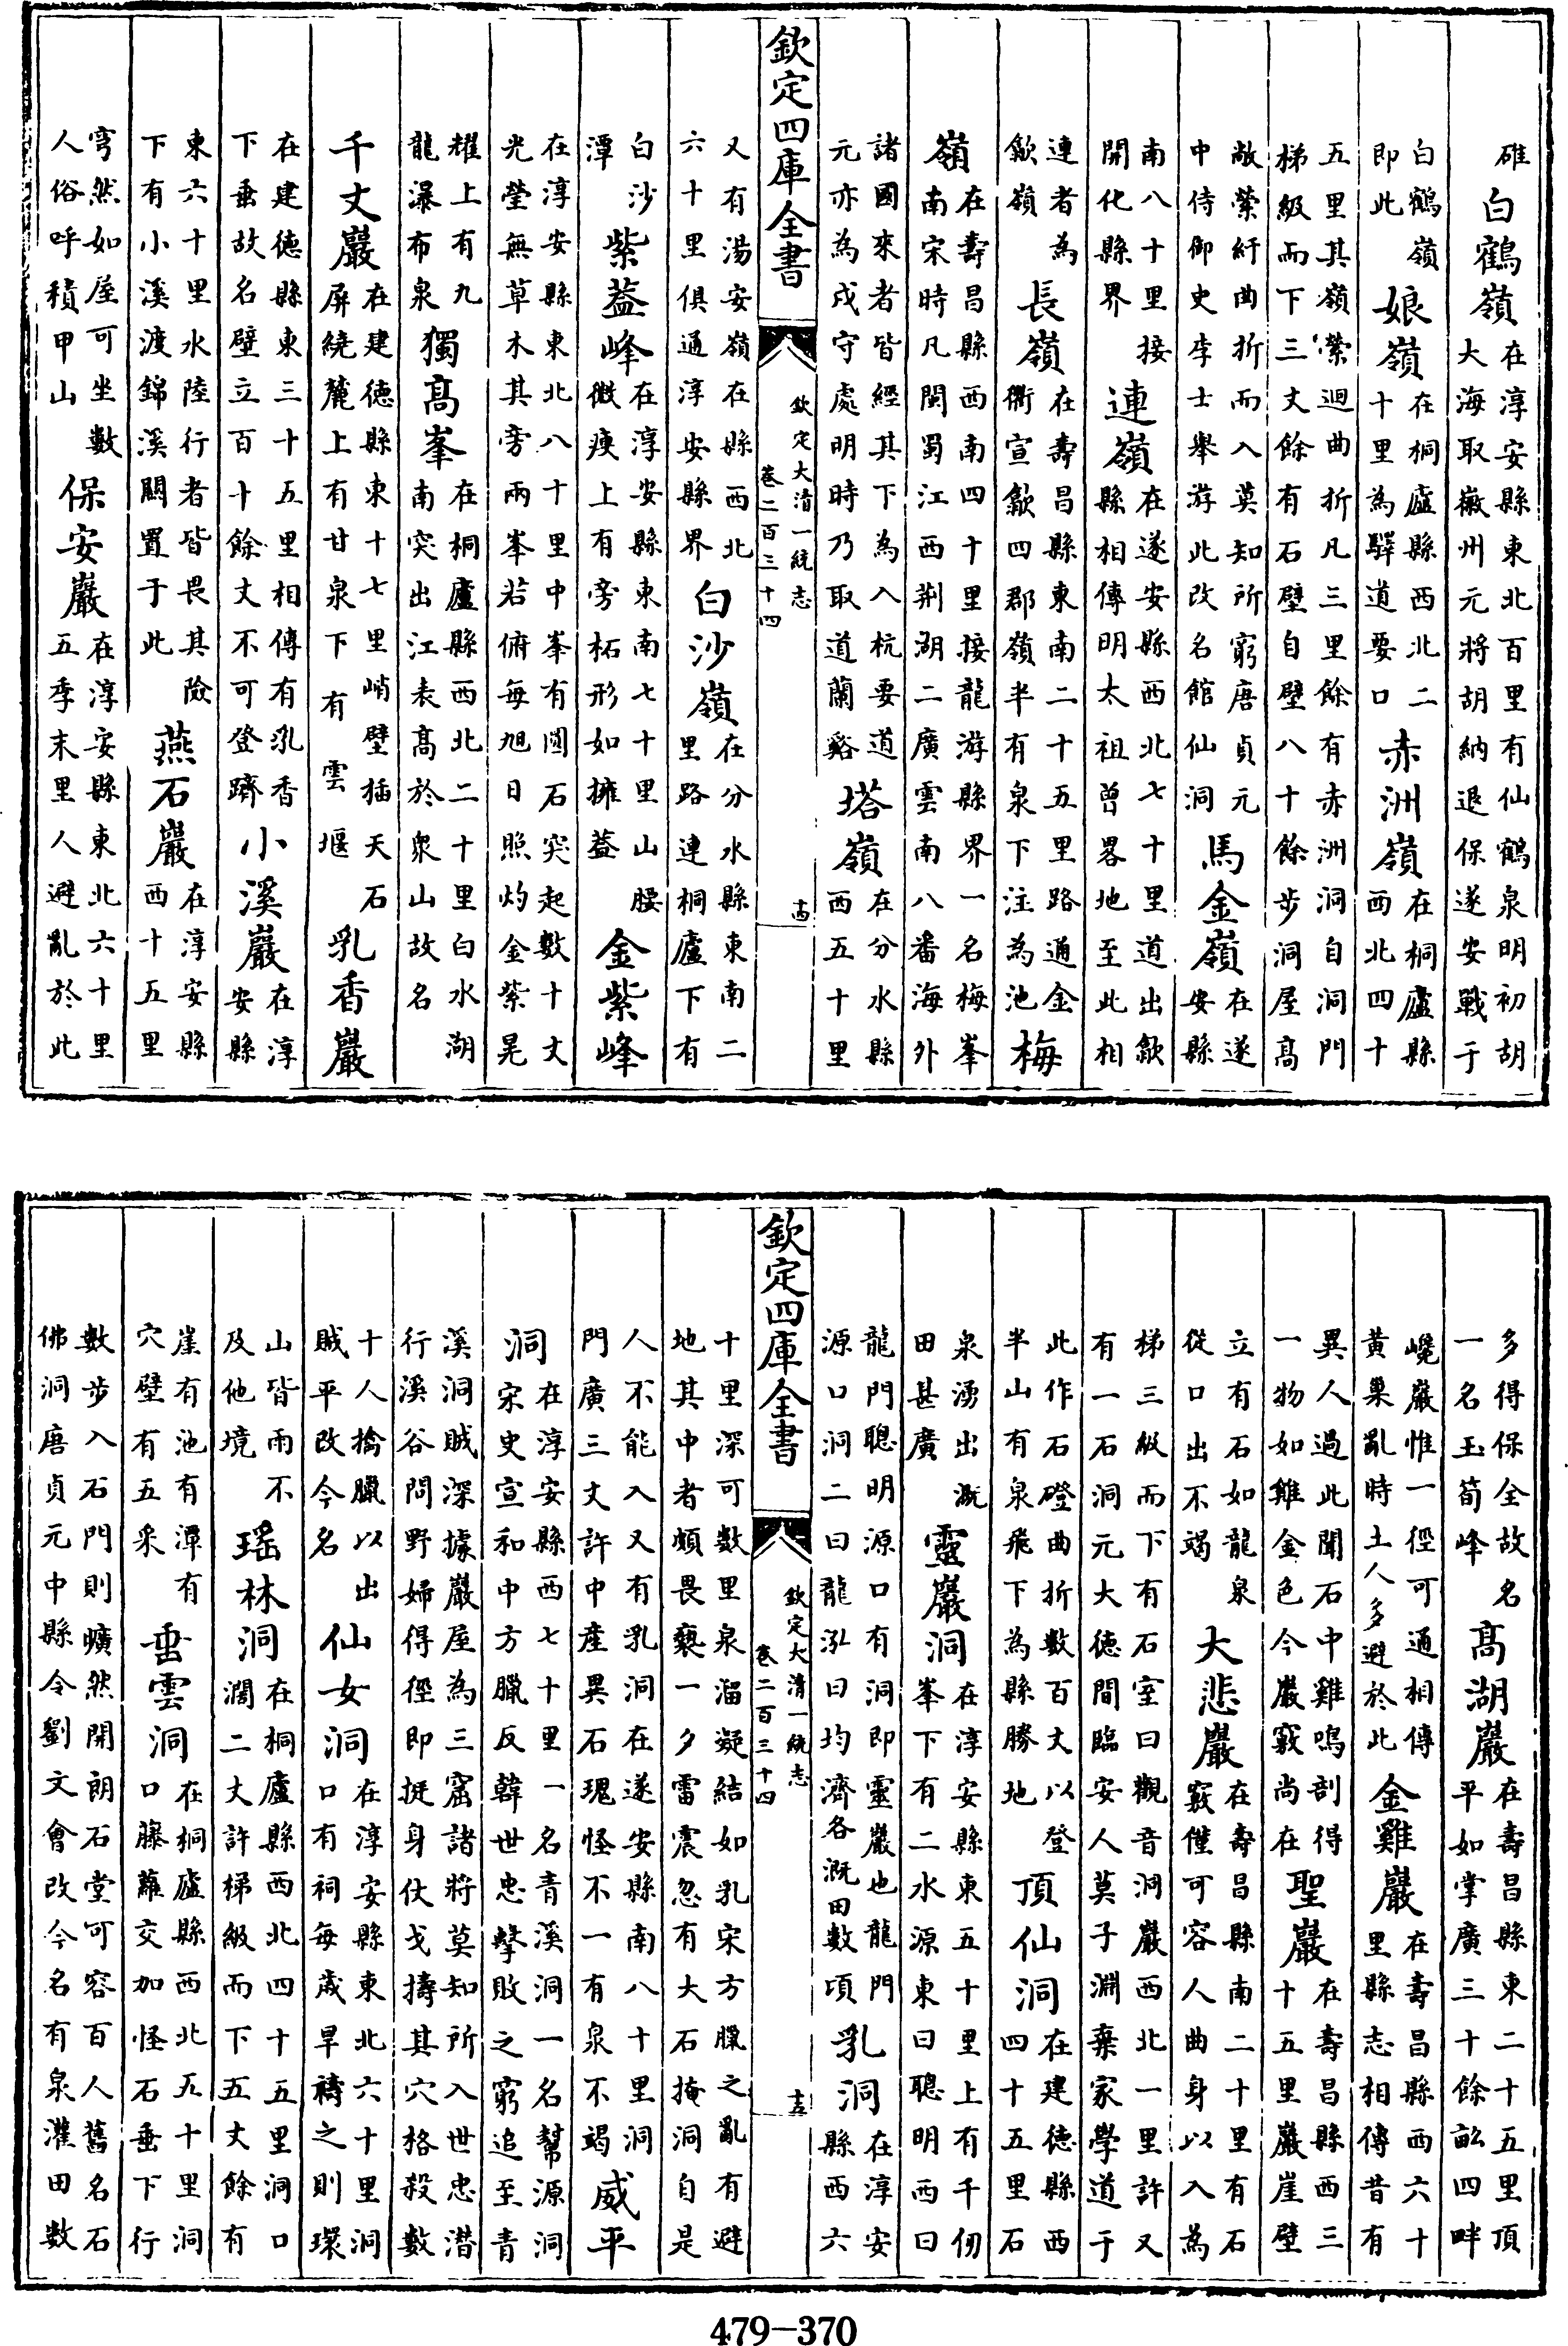 碓白鶴嶺在淳安縣東北百里有仙鶴泉明初胡大海取徽州元將胡納退保遂安戰于
白鶴嶺即此娘嶺在桐廬縣西北二十里為驛道要口赤洲嶺在桐廬縣西北四十
五里其嶺縈迴曲折凡三里餘有赤洲洞自洞門梯級而下三丈餘有石壁自壁八十餘步洞屋高
敞縈紆曲折而入莫知所窮唐貞元中侍御史李士舉游此改名館仙洞馬金嶺在遂安縣
南八十里接開化縣界連嶺在遂安縣西北七十里道出歙縣相傳明太祖曾畧地至此相
連者為歙嶺長嶺在壽昌縣東南二十五里路通金衢宣歙四郡嶺半有泉下注為池梅
嶺在壽昌縣西南四十里接龍游縣界一名梅峯南宋時凡閩蜀江西荆湖二廣雲南八番海外
諸國來者皆經其下為入杭要道元亦為戍守處明時乃取道蘭谿塔嶺在分水縣西五十里
欽定四庫全書
欽定大清一統志
卷二百三十四
十四
又有湯安嶺在縣西北六十里俱通淳安縣界白沙嶺在分水縣東南二里路連桐廬下有
白沙潭紫葢峰在淳安縣東南七十里山腰微瘐上有旁柘形如擁葢金紫峰
在淳安縣東北八十里中峯有圓石突起數十丈光瑩無草木其旁兩峯若俯每旭日照灼金紫晃
耀上有九龍瀑布泉獨高峯在桐廬縣西北二十里白水湖南突出江表高於衆山故名
千丈巖在建德縣東十七里峭壁插天石屏繞麓上有甘泉下有雲堰乳香巖
在建德縣東三十五里相傳有乳香下垂故名壁立百十餘丈不可登躋小溪巖在淳安縣
東六十里水陸行者皆畏其險下有小溪渡錦溪關置于此燕石巖在淳安縣西十五里
穹然如屋可坐數人俗呼積甲山保安巖在淳安縣東北六十里五季末里人避亂於此
多得保全故名一名玉筍峰高湖巖在壽昌縣東二十五里頂平如掌廣三十餘畝四畔
巉巖惟一徑可通相傳黃巢亂時土人多避於此金雞巖在壽昌縣西六十里縣志相傳昔有
異人過此聞石中雞鳴剖得一物如雞金色今巖竅尚在聖巖在壽昌縣西三十五里巖崖壁
立有石如龍泉從口出不竭大悲巖在壽昌縣南二十里有石竅僅可容人曲身以入為
梯三級而下有石室曰觀音洞巖西北一里許又有一石洞元大德間臨安人莫子淵棄家學道于
此作石磴曲折數百丈以登半山有泉飛下為縣勝地頂仙洞在建德縣西四十五里石
泉湧出溉田甚廣靈巖洞在淳安縣東五十里上有千仞峯下有二水源東曰聰明西曰
龍門聰明源口有洞即靈巖也龍門源口洞二曰龍泓曰均濟各溉田數頃乳洞在淳安縣西六
欽定四庫全書
欽定大清一統志
卷二百三十四
十五
十里深可數里泉溜凝結如乳宋方臘之亂有避地其中者頗畏褻一夕雷震忽有大石掩洞自是
人不能入又有乳洞在遂安縣南八十里洞門廣三丈許中產異石瑰怪不一有泉不竭威平
洞在淳安縣西七十里一名青溪洞一名幫源洞宋史宣和中方臘反韓世忠擊敗之窮追至青
溪洞賊深據巖屋為三窟諸將莫知所入世忠潛行溪谷問野婦得徑即挺身仗戈擣其穴格殺數
十人擒臘以出賊平改今名仙女洞在淳安縣東北六十里洞口有祠每歲旱禱之則環
山皆雨不及他境瑶林洞在桐廬縣西北四十五里洞口濶二丈許梯級而下五丈餘有
崖有池有潭有穴壁有五采垂雲洞在桐廬縣西北五十里洞口籐蘿交加怪石垂下行
數步入石門則曠然開朗石堂可容百人舊名石佛洞唐貞元中縣令劉文會改今名有泉灌田數
479-370